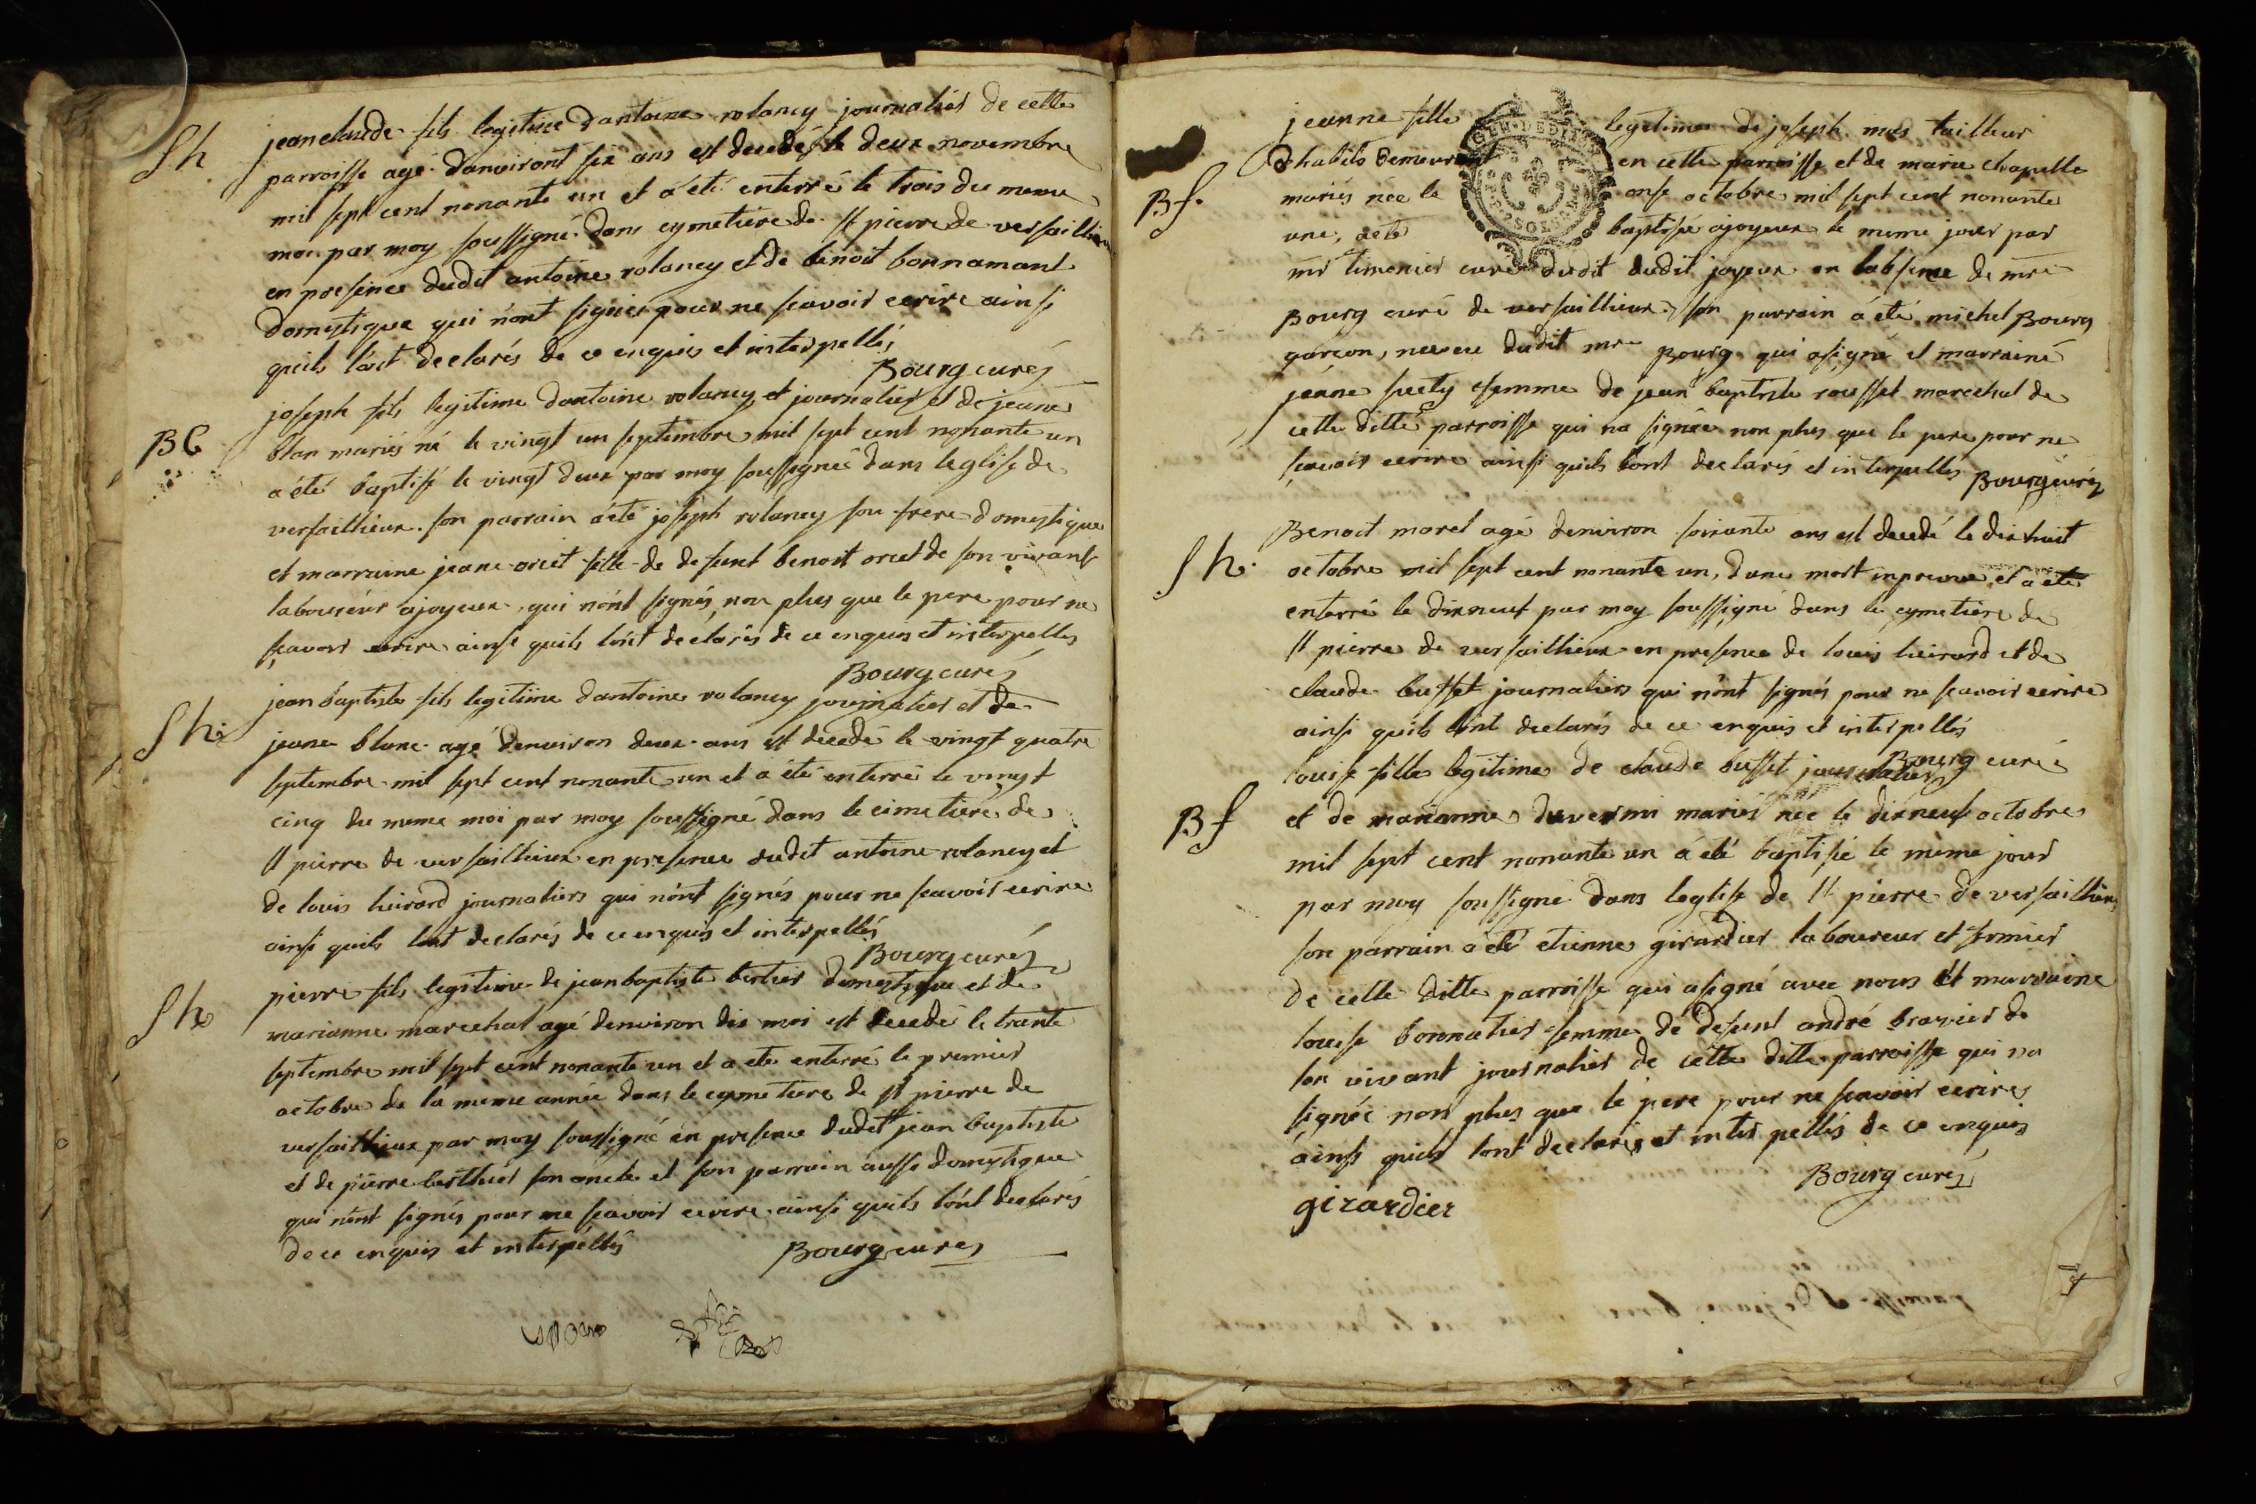 Sh
jean claude fils legitime dantoine rolancy journalier de cette
parroisse agé danviront six ans est decedé le deux novembre
mil sept cent nonante un et a été enterré le trois du meme
moi par moy soussigné dans cymetiere de St pierre de versaillieux
en presence dudit antoine rolancy et de benoit bonnamant
domestique qui n'ont signés pour ne scavoir ecrire ainsi
quils l'ont declarés de ce enquis et interpellés
Bourg curé
joseph fils legitime dantoine rolancy et journalier et de jeane
BG
blan mariés né le vingt un septembre mil sept cent nonante un
a été baptisé le vingt deux par moy soussignéé dans leglise de
versaillieux. son parrain a été joseph rolancy son frere domestique
et marraine jeane oriet fille de defunt benoit oriet de son vivant
laboureur ajoyeux, qui n'ont signés, non plus que le pere pour ne
scavoir ecrire ainsi quils l'ont declarés de ce enquis et interpellés
Bourg curé
jean baptiste fils legitime dantoine rolancy journalier et de
Sh
jeane blanc agé denviron deux ans est decedé le vingt quatre
septembre mil sept cent nonante un et a été enterré le vingt
cinq du meme moi par moy soussigné dans le cimetiere de
St pierre de versaillieux en presence dudit antoine rolancy et
de louis heirard journaliers qui n'ont signés pour ne scavoir ecrire
ainsi quils l'ont declarés de ce enquis et interpellés
Bourg curé
pierre fils legitime de jean baptiste bertier domestique et de
Sh
marianne marechal agé denviron dix moi est decedé le trante
septembre mil sept cent nonante un et a eté enterré le premier
octobre de la meme année dans le cymetiere de St pierre de
versaillieux par moy soussigné en presence dudit jean baptiste
et de pierre berthier son oncle et son parrain aussi domestique
qui n'ont signés pour ne scavoir ecrire ainsi quils l'ont declarés
de ce enquis et interpellés
Bourg curé
jeanne fille legitime de joseph mas tailleur
dhabits demeurant en cette parroisse et de marie chapelle
Bf.
mariés née le onse octobre mil sept cent nonante
une, a eté baptisée ajoyeux le meme jour par
mr timonier curé dudit dudit joyeux en labsence de mre
Bourg curé de versaillieux. son parrain a été michel Bourg
garçon, neveu dudit mre Bourg qui a signé et marraine
jeane suety femme de jean baptiste rousset marechal de
cette ditte parroisse qui na signée non plus que le pere pour ne
scavoir ecrire ainsi quils l'ont declarés et interpellés Bourg curé
Benoit morel agé denviron soixante ans est decedé le dix huit
Sh.
octobre mil sept cent nonante un, dune mort imprevue et a eté
enterré le dixneuf par moy soussigné dans le cymetiere de
St pierre de versaillieux en presence de louis heirard et de
claude busset journaliers qui n'ont signés pour ne scavoir ecrire
ainsi quils lont declarés de ce enquis et interpellés
Bourg curé
louise fille legitime de claude busset journalier
Bf
et de marianne duvermi mariés née le dixneuf octobre
mil sept cent nonante un a eté baptisée le même jour
par moy soussigné dans leglise de St pierre de versaillieux
son parrain a eté etienne girardier laboureur et fermier
de cette ditte parroisse qui a signé avec nous et marraine
louise bonnatier femme de defunt andré brazier de
son vivant journalier de cette ditte parroisse qui na
signée non plus que le pere pour ne scavoir ecrire
ainsi quils lont declarés et interpellés de ce enquis
Bourg curé
girardier